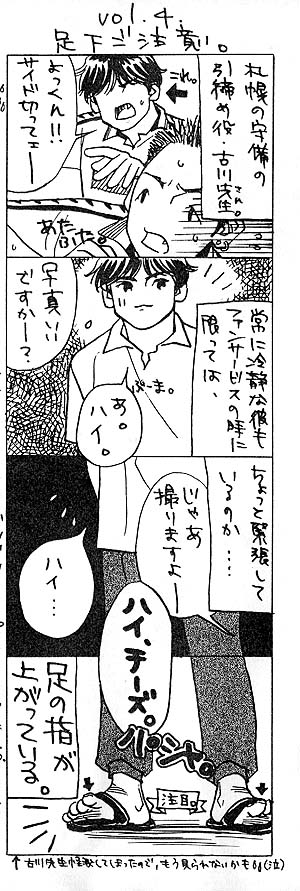 vol.4.
足下ご注意。
札幌の守備の
引締め役・古川先生
さん。
これ。
よっくん!!
サイド切ってェー
あたふた。
常に冷静な彼も
ファンサービスの時に
限っては、
写真いい
ですかー?
ぷーま。
あ。
ハイ。
ちょっと緊張して
いるのか…。
じゃあ
撮りますよー
ハイ…
ハイ、チーズ。
パシャ。
足の指が
上がっている。
注目。
↑古川先生怪我してしまったので、もう見られないかも(泣)